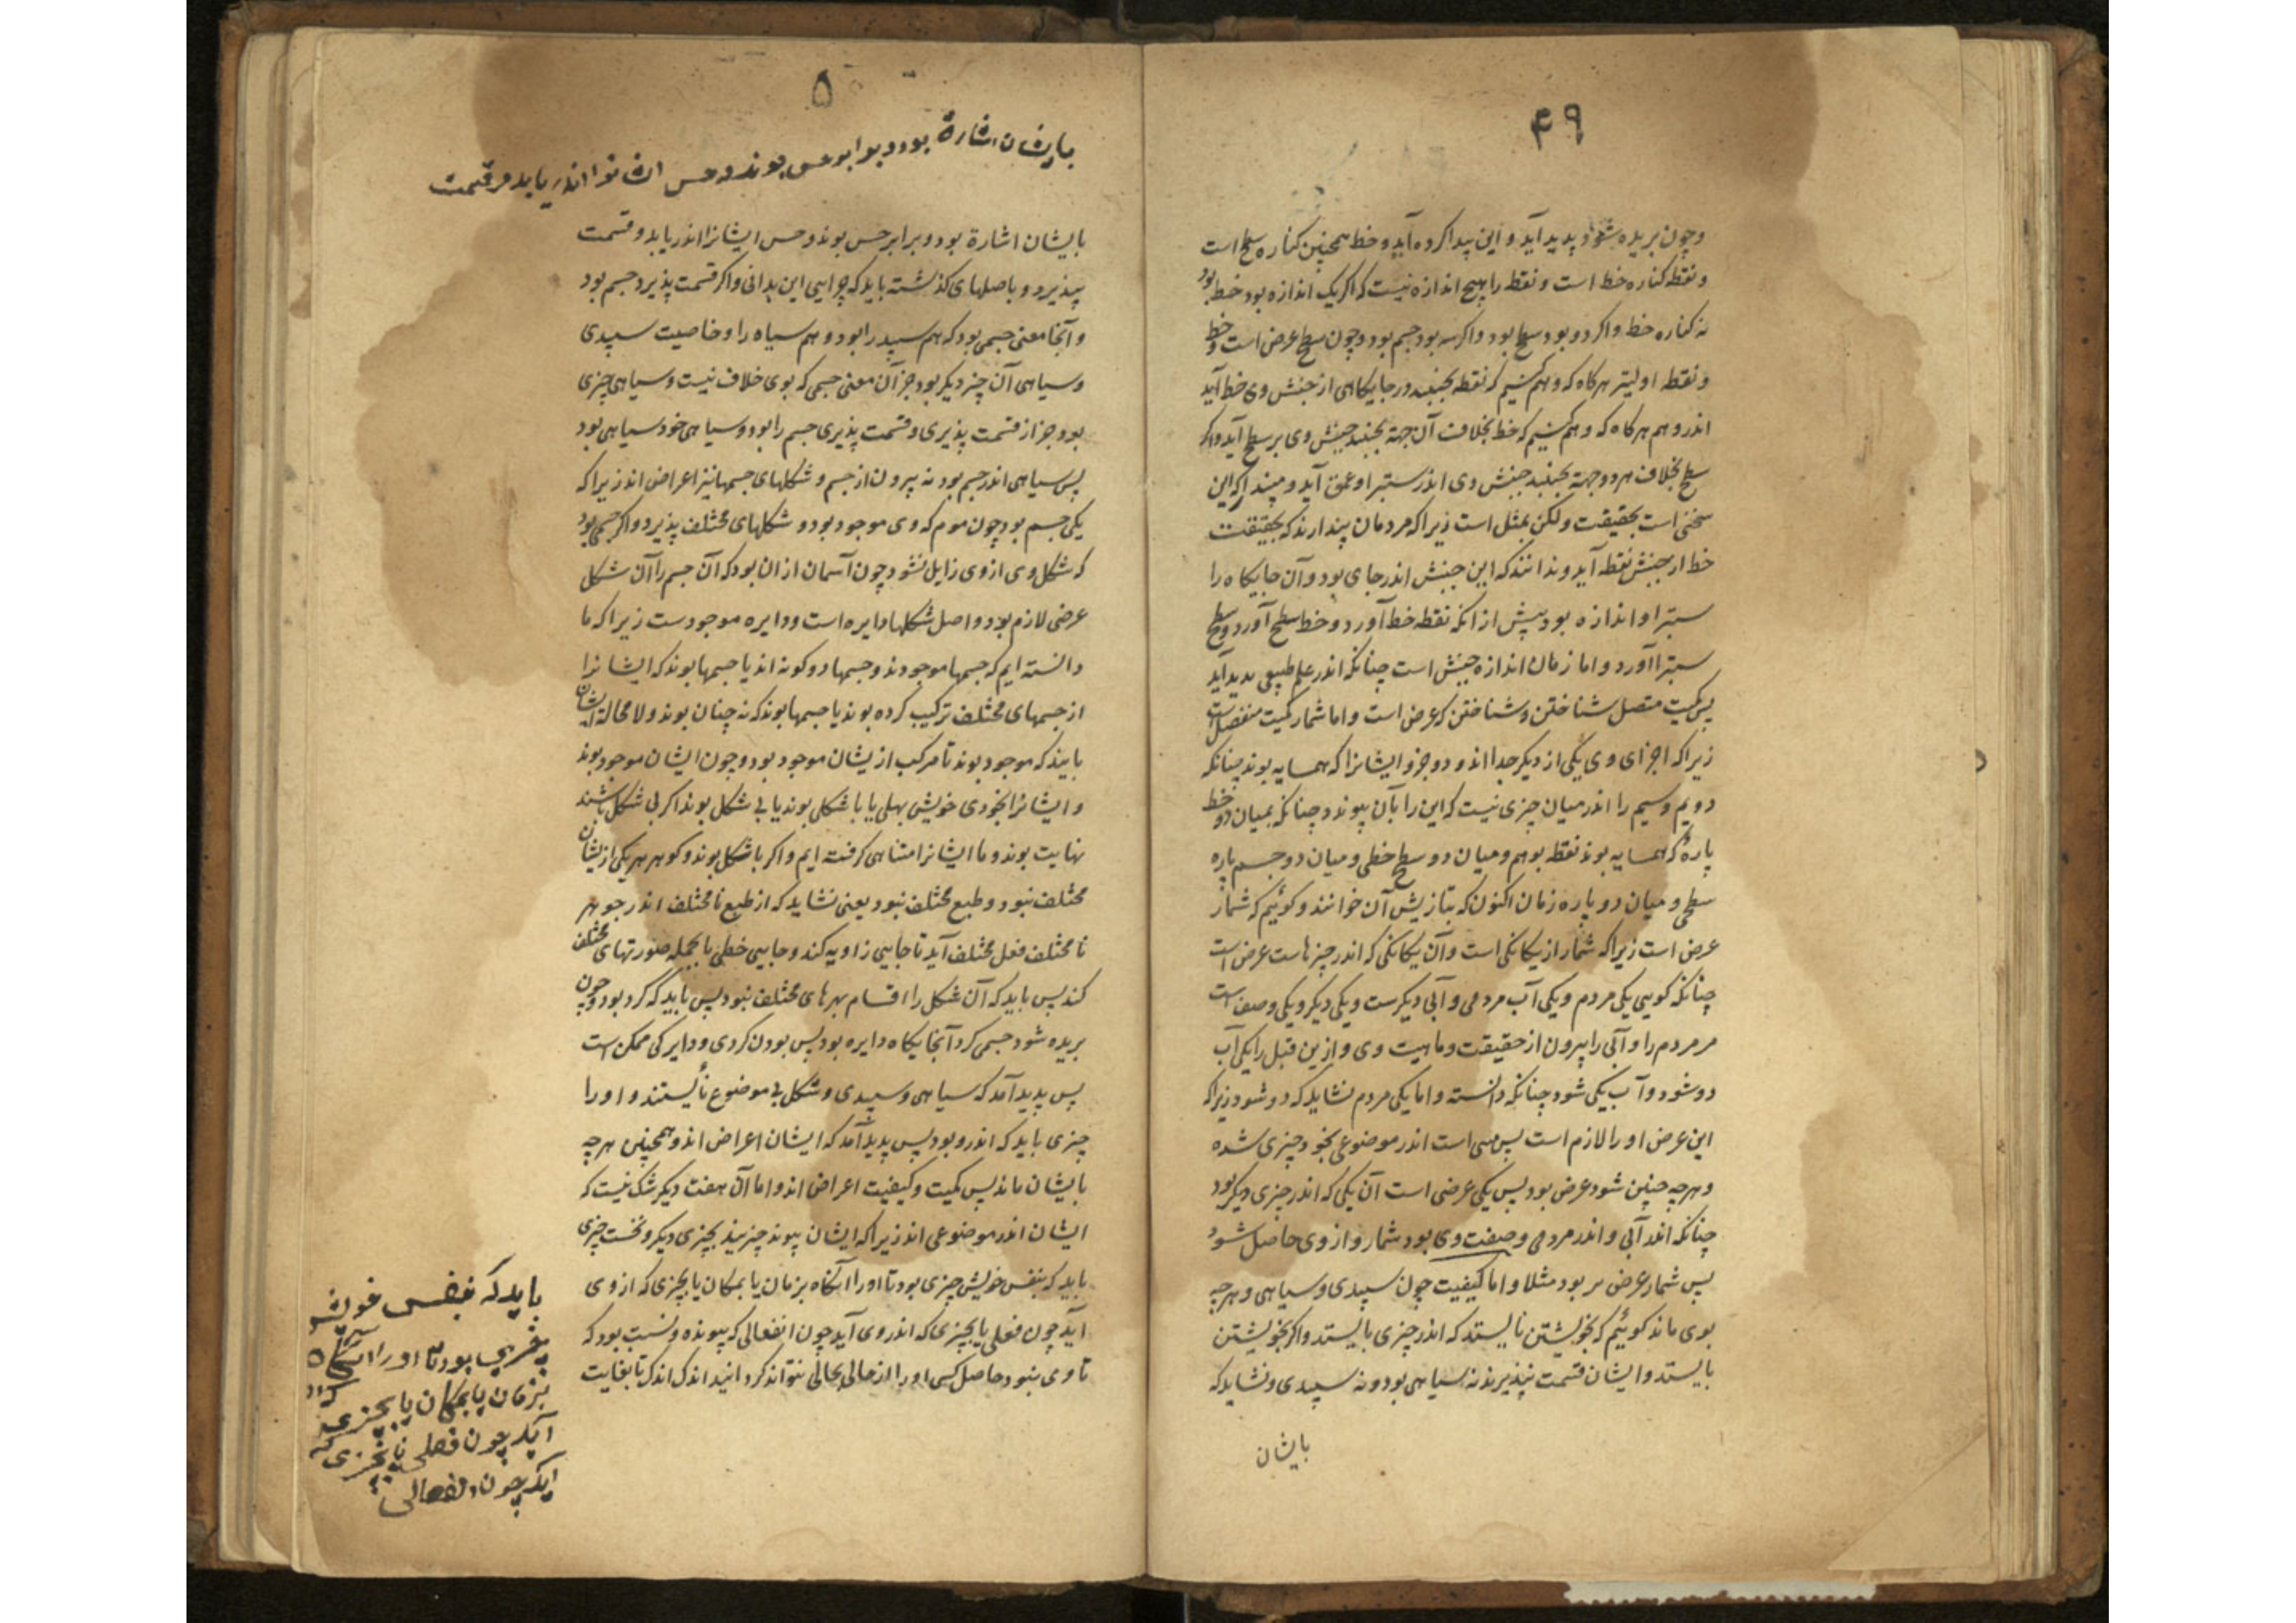 ۴۹
وچون بریده شود پدید آید و این پیدا کرده آید و خط همچنین کناره سطح است
و نقطه کناره خط است و نقطه را هیچ اندازه نیست که اکر یک اندازه بود خط بود
نه کناره خط و اکر دو بود سطح بود و اکر سه بود جسم بود و چون سطح عرض است و خط
و نقطه اولیتر هرکاه که وهم کنیم که نقطه بجنبد در جایکاهی از جنبش وی خط آید
اندر وهم هرکاه که وهم کنیم که خط بخلاف آن جهة بجنبد جنبش وی بر سطح آید و اکر
سطح بخلاف هر دو جهة بجنبد جنبش وی اندر ستبرا و عمق آید و مپندار که این
سخنی است بحقیقت ولکن بمثل است زیرا که مردمان پندارند که بحقیقت
خط از جنبش نقطه آید و ندانند که این جنبش اندر جای بود و آن جایکاه را
ستبرا و اندازه بود پیش از آنکه نقطه خط آورد و خط سطح آورد و سطح
ستبرا آورد و اما زمان اندازه جنبش است چنانکه اندر علم طبیعی پدید آید
پس کمیت متصل شناختن و شناختن که عرض است و اما شمار کمیت منفصل است
زیرا که اجزای وی یکی از دیکر جدا اند و دو جزو ایشانرا که همسایه بوند چنانکه
دویم و سیم را اندر میان چیزی نیست که این را بآن پیوندد چنانکه بمیان دو خط
پارهٔ که همسایه بوند نقطه بوهم و میان دو سطح خطی و میان دو جسم پاره
سطحی و میان دو پاره زمان اکنون که بتازیش آن خوانند و کوئیم که شمار
عرض است زیرا که شمار از یکانکی است و آن یکانکی که اندر چیزهاست عرض است
چنانکه کویی یکی مردم و یکی آب مردمی و آبی دیکرست و یکی دیکر و یکی وصف است
مر مردم را و آبی را بیرون از حقیقت و ماهیت وی و از این قبل را یکی آب
دو شود و آب یکی شود چنانکه دانسته و اما یکی مردم نشاید که دو شود زیرا که
این عرض او را لازم است پس یکی است اندر موضوعی بخود چیزی شده
و هرچه چنین شود عرض بود پس یکی عرضی است آن یکی که اندر چیزی دیکر بود
چنانکه اندر آبی و اندر مردمی و صفت وی بود شمار و از وی حاصل شود
پس شمار عرض تر بود مثلا و اما کیفیت چون سپیدی و سیاهی و هرچه
بوی ماند کوئیم که بخویشتن نایستد که اندر چیزی بایستد و اکر بخویشتن
بایستد و ایشان قسمت نپذیرند نه سیاهی بود و نه سپیدی و نشاید که
بایشان
۵
بایشان اشارة بود و برابر حس بوند و حس انشانرا اندریابد و قسمت
بایشان اشارة بود و برابر حس بوند و حس ایشانرا اندریابد و قسمت
بپذیرد و باصلهای کذشته باید که چرایی این بدانی و اکر قسمت پذیرد جسم بود
و آنجا معنی جسمی بود که هم سپید را بود و هم سیاه را و خاصیت سپیدی
و سیاهی آن چیز دیکر بود جز آن معنی جسمی که بوی خلاف نیست و سیاهی چیزی
بود جز از قسمت پذیری و قسمت پذیری جسم را بود و سیاهی خود سیاهی بود
پس سیاهی اندر جسم بود نه بیرون از جسم و شکلهای جسمها نیز اعراض اند زیرا که
یکی جسم بود چون موم که وی موجود بود و شکلهای مختلف پذیرد و اکر جسمی بود
که شکل وی از وی زایل نشود چون آسمان از ان بود که آن جسم را آن شکل
عرضی لازم بود و اصل شکلها دایره است و دایره موجودست زیرا که ما
دانسته ایم که جسمها موجودند و جسمها دو کونه اند یا جسمها بوند که ایشانرا
از جسمهای مختلف ترکیب کرده بوند یا جسمها بوند که نه چنان بوند و لامحاله ایشان
بایند که موجود بوند تا مرکب از یشان موجود بود و چون ایشان موجود بوند
و ایشانرا بخودی خویش بهلی یا با شکلی بوند یا بی شکل بوند اکر بی شکل باشند
نهایت بوند و ما ایشانرا متناهی کرفته ایم و اکر با شکل بوند و کوهر هر یکی از یشان
مختلف نبود و طبع مختلف نبود یعنی نشاید که از طبع نامختلف اندر جوهر
نامختلف فعل مختلف آید تا جایی زاویه کند و جایی خطی یا بجمله صورتهای مختلف
کند پس باید که آن شکل را اقسام بهرهای مختلف نبود پس باید که کرد بود و چون
بریده شود جسمی کرد آنجایکاه دایره بود پس بودن کردی و دایرکی ممکن است
پس پدید آمد که سیاهی و سپیدی و شکل بی موضوع نایستند و او را
چیزی باید که اندرو بود پس پدید آمد که ایشان اعراض اند و همچنین هرچه
بایشان ماند پس کمیت و کیفیت اعراض اند و اما آن هفت دیکر شک نیست که
ایشان اندر موضوعی اند زیرا که ایشان پیوند چیزیند بچیزی دیکر و نخست چیزی
باید که بنفس خویش چیزی بود تا او را آنکاه بزمان یا بمکان یا بچیزی که از وی
آید چون فعلی یا بچیزی که اندر وی آید چون انفعالی که پیونده و نسبت بود که
تا وی نبود حاصل کسی او را از حالی بحالی نتواند کردانید اندک اندک تا بغایت
باید که بنفس خویش
چیزی بود تا او را آنکاه
بزمان یا بمکان یا بچیزی که از
آید چون فعلی یا بچیزی که
آید چون انفعالی